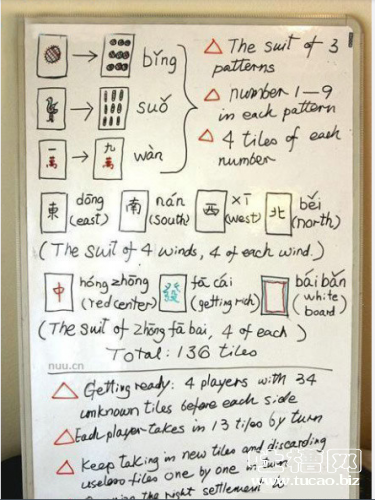 → bǐng
△ The suit of 3
patterns
→ suǒ
△ number 1-9
in each pattern
一萬 → 九萬 wàn
△ 4 tiles of each
number
東 dōng (east) 南 nán (south) 西 xī (west) 北 běi (north)
(The suit of 4 winds, 4 of each wind.)
中 hóng zhōng (red center) 發 fā cái (getting rich) bái bǎn (white board)
(The suit of zhōng fā bai, 4 of each)
Total: 136 tiles
nuu.cn
△ Getting ready: 4 players with 34
unknown tiles before each side
△ Each player takes in 13 tiles by turn
△ Keep taking in new tiles and discarding
useless tiles one by one in
the right settlement
www.tucao.biz